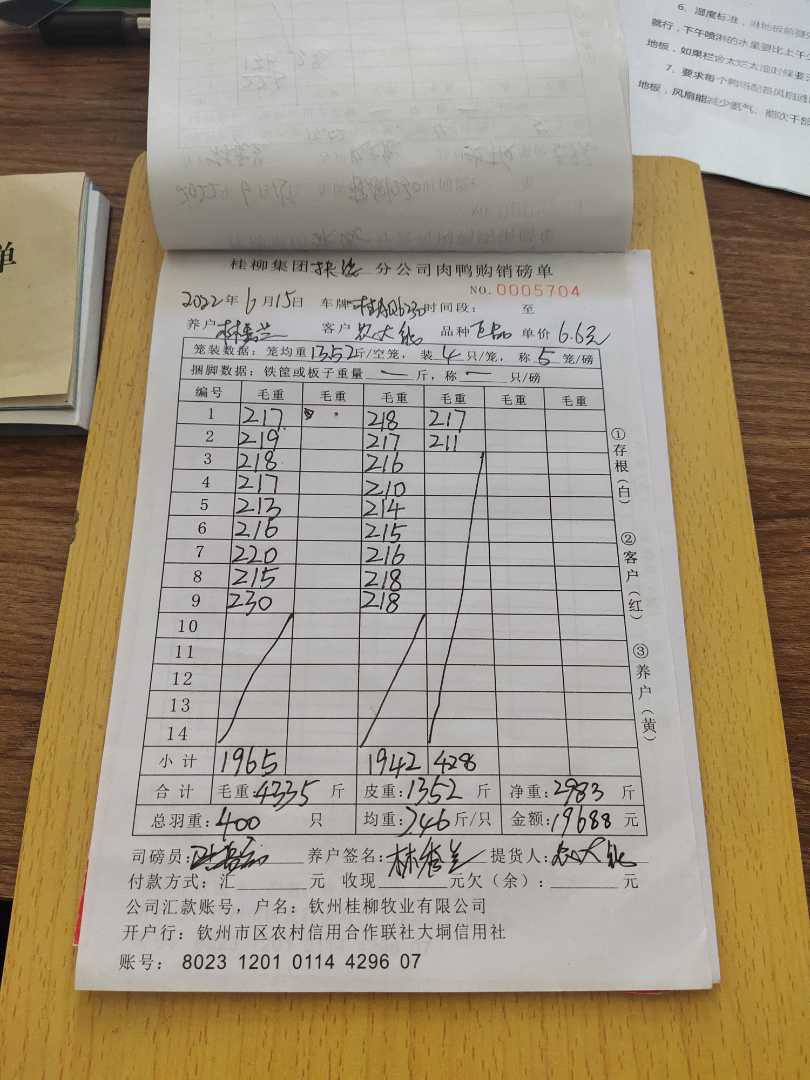 6、湿度标准，淋地板前要
就行，下午喷淋的水量要比上午少
地板，如果栏舍太烂太湿时候要
7、要求每个鸭场配备风扇
地板，风扇能减少氨气、潮
单
桂柳集团 分公司肉鸭购销磅单
NO.0005704
2022年6月15日 车牌 时间段： 至
养户 林秀兰 客户 农大能 品种 正品 单价 6.6元
笼装数据：笼均重1352斤/空笼，装4只/笼，称5笼/磅
捆脚数据：铁筐或板子重量 — 斤，称 — 只/磅
编号 毛重 毛重 毛重 毛重 毛重 毛重
1 217 218 217
2 219 217 211
3 218 216
4 217 210
5 213 214
6 216 215
7 220 216
8 215 218
9 230 218
10
11
12
13
14
小计 1965 1942 428
合计 毛重：4335斤 皮重：1352斤 净重：2983斤
总羽重：400只 均重：7.46斤/只 金额：19688元
司磅员： 养户签名：林秀兰 提货人：农大能
付款方式：汇 元 收现 元欠（余）： 元
公司汇款账号，户名：钦州桂柳牧业有限公司
开户行：钦州市区农村信用合作联社大垌信用社
账号： 8023 1201 0114 4296 07
①存根（白） ②客户（红） ③养户（黄）